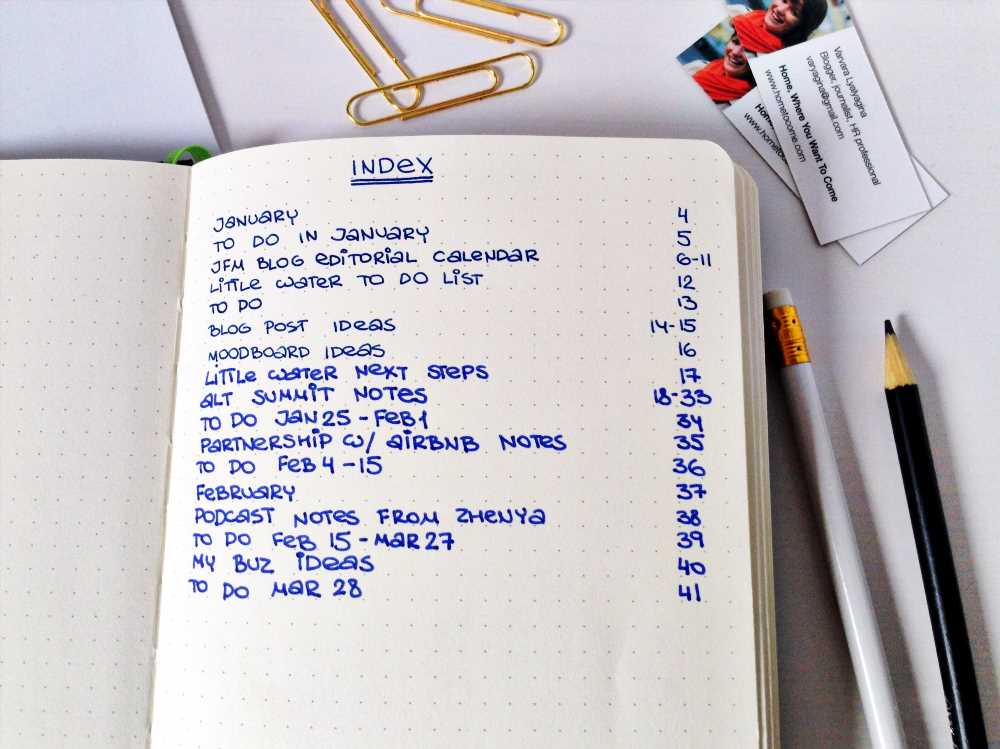 INDEX
JANUARY 4
TO DO IN JANUARY 5
JFM BLOG EDITORIAL CALENDAR 6-11
LITTLE WATER TO DO LIST 12
TO DO 13
BLOG POST IDEAS 14-15
MOODBOARD IDEAS 16
LITTLE WATER NEXT STEPS 17
ALT SUMMIT NOTES 18-33
TO DO JAN 25 - FEB 1 34
PARTNERSHIP W/ AIRBNB NOTES 35
TO DO FEB 4 - 15 36
FEBRUARY 37
PODCAST NOTES FROM ZHENYA 38
TO DO FEB 15 - MAR 27 39
MY BUZ IDEAS 40
TO DO MAR 28 41
Varvara Lyalyagina
Blogger, journalist, HR professional
varyagina@gmail.com
Home, Where You Want To Come
www.hometocome.com
Home
www.hometoc